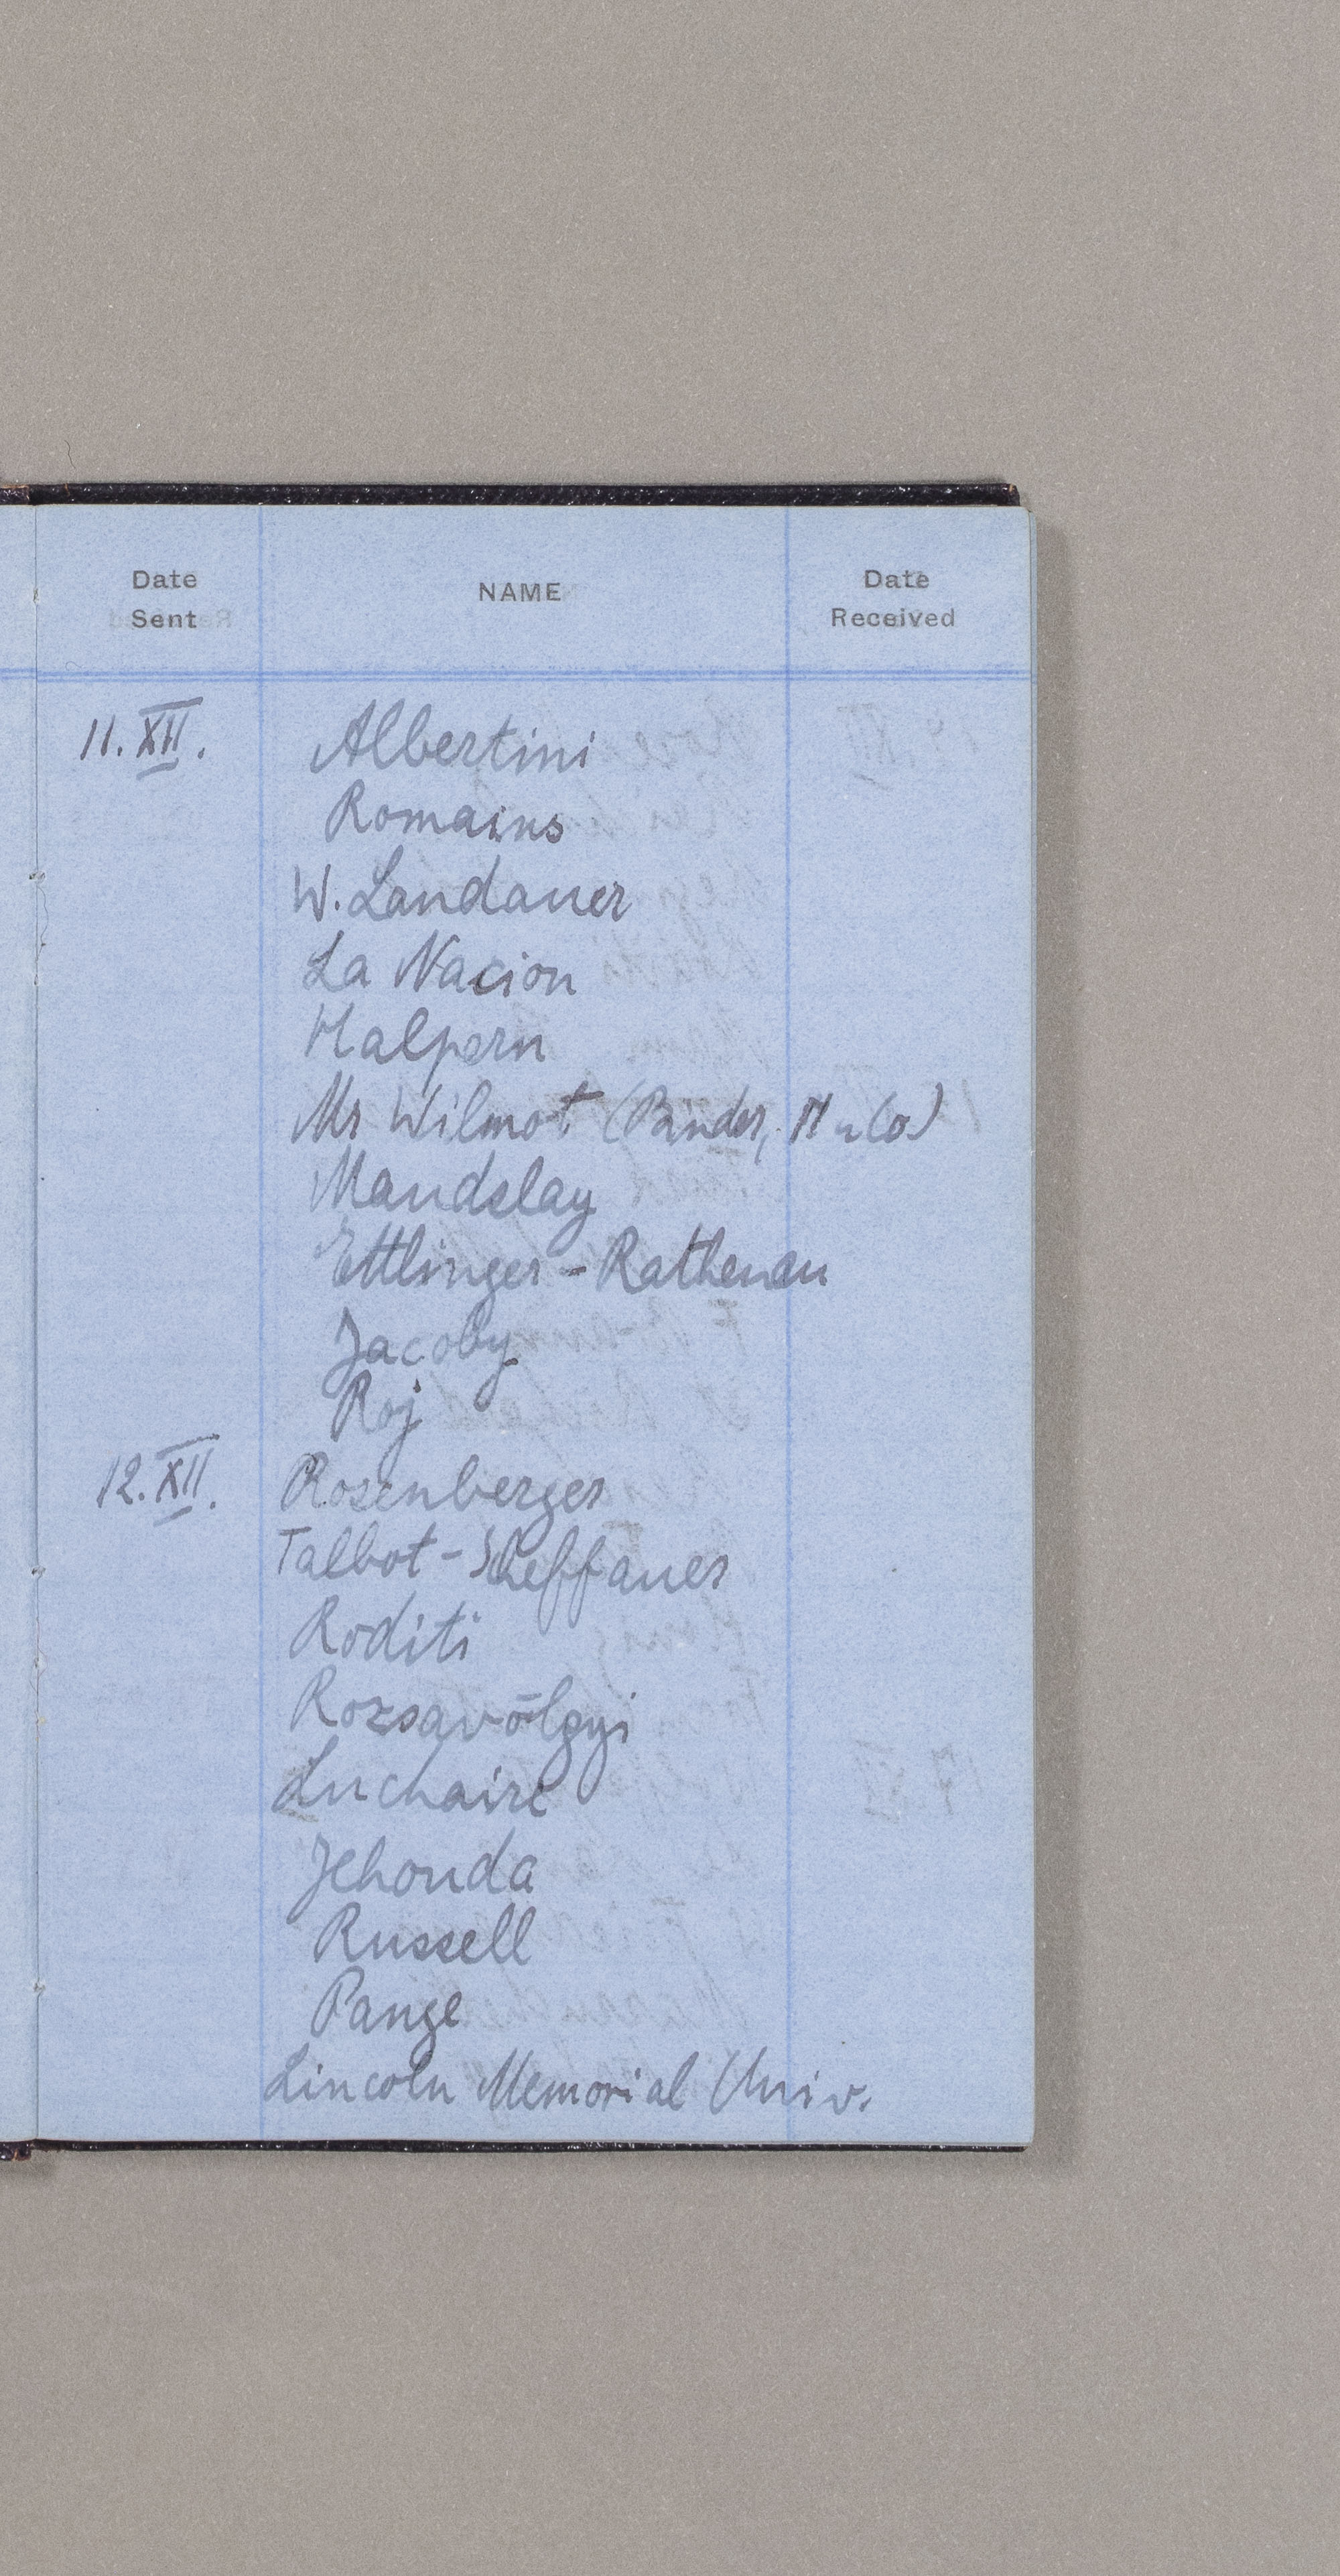 Date
Sent
NAME
Date
Received
11. XII.
Albertini
Romains
W. Landauer
La Nacion
Halpern
Mr Wilmot (Binder, H u Co)
Maudslay
Ettlinger - Rathenau
Jacoby
Roj
12. XII.
Rosenberger
Talbot - Scheffauer
Roditi
Rozsavölgyi
Luchaire
Jehouda
Russell
Pange
Lincoln Memorial Univ.